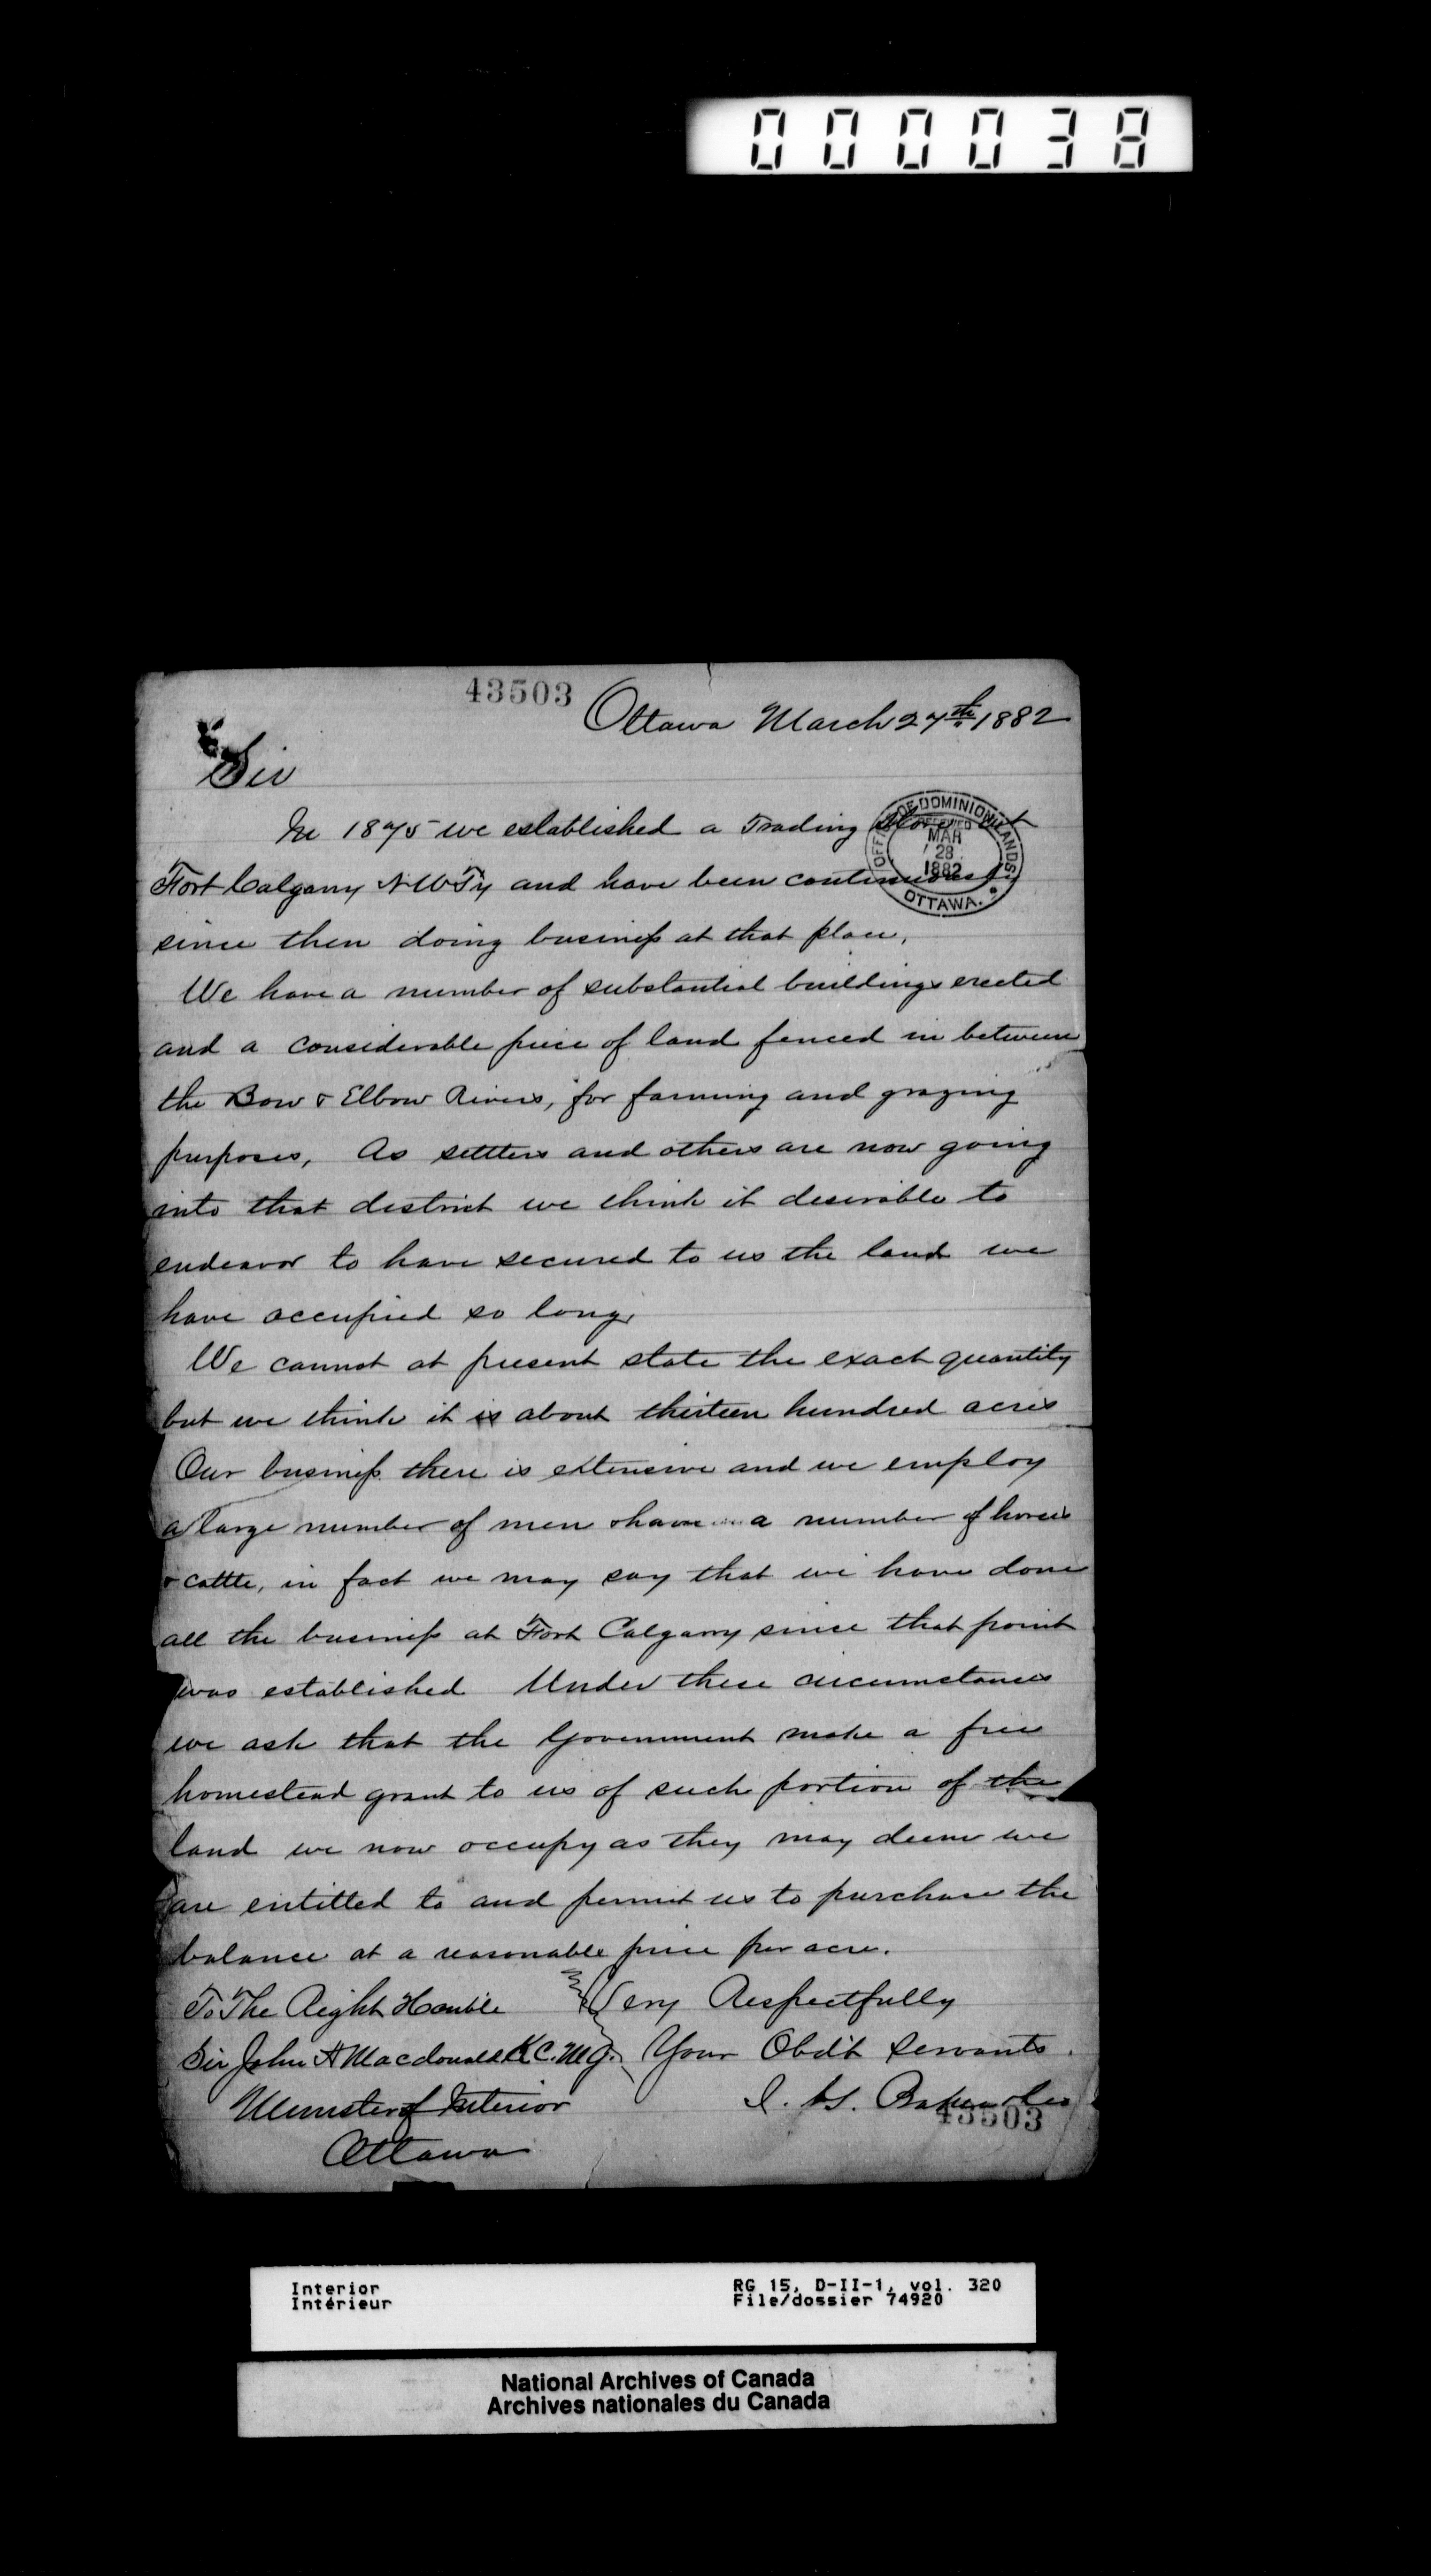 000038
43503
Ottawa March 27th 1882
Sir
In 1875 we established a Trading Store at
OFFICE OF DOMINION LANDS
RECEIVED
MAR
28
1882
OTTAWA.
Fort Calgary N W Ty and have been continuously
since then doing business at that place.
We have a number of substantial buildings erected
and a considerable piece of land fenced in between
the Bow & Elbow Rivers, for farming and grazing
purposes, As settlers and others are now going
into that district we think it desirable to
endeavor to have secured to us the land we
have occupied so long.
We cannot at present state the exact quantity
but we think it is about thirteen hundred acres
Our business there is extensive and we employ
a large number of men & have a number of horses
& cattle, in fact we may say that we have done
all the business at Fort Calgarry since that point
was established Under these circumstances
we ask that the Government make a free
homestead grant to us of such portion of the
land we now occupy as they may deem we
are entitled to and permit us to purchase the
balance at a reasonable price per acre.
To The Right Honble Very Respectfully
Sir John A Macdonald K.C.M.G. Your Obdt Servants.
Minister of Interior I. G. Baker & Co
43503
Ottawa
Interior RG 15, D-II-1, vol. 320
Intérieur File/dossier 74920
National Archives of Canada
Archives nationales du Canada